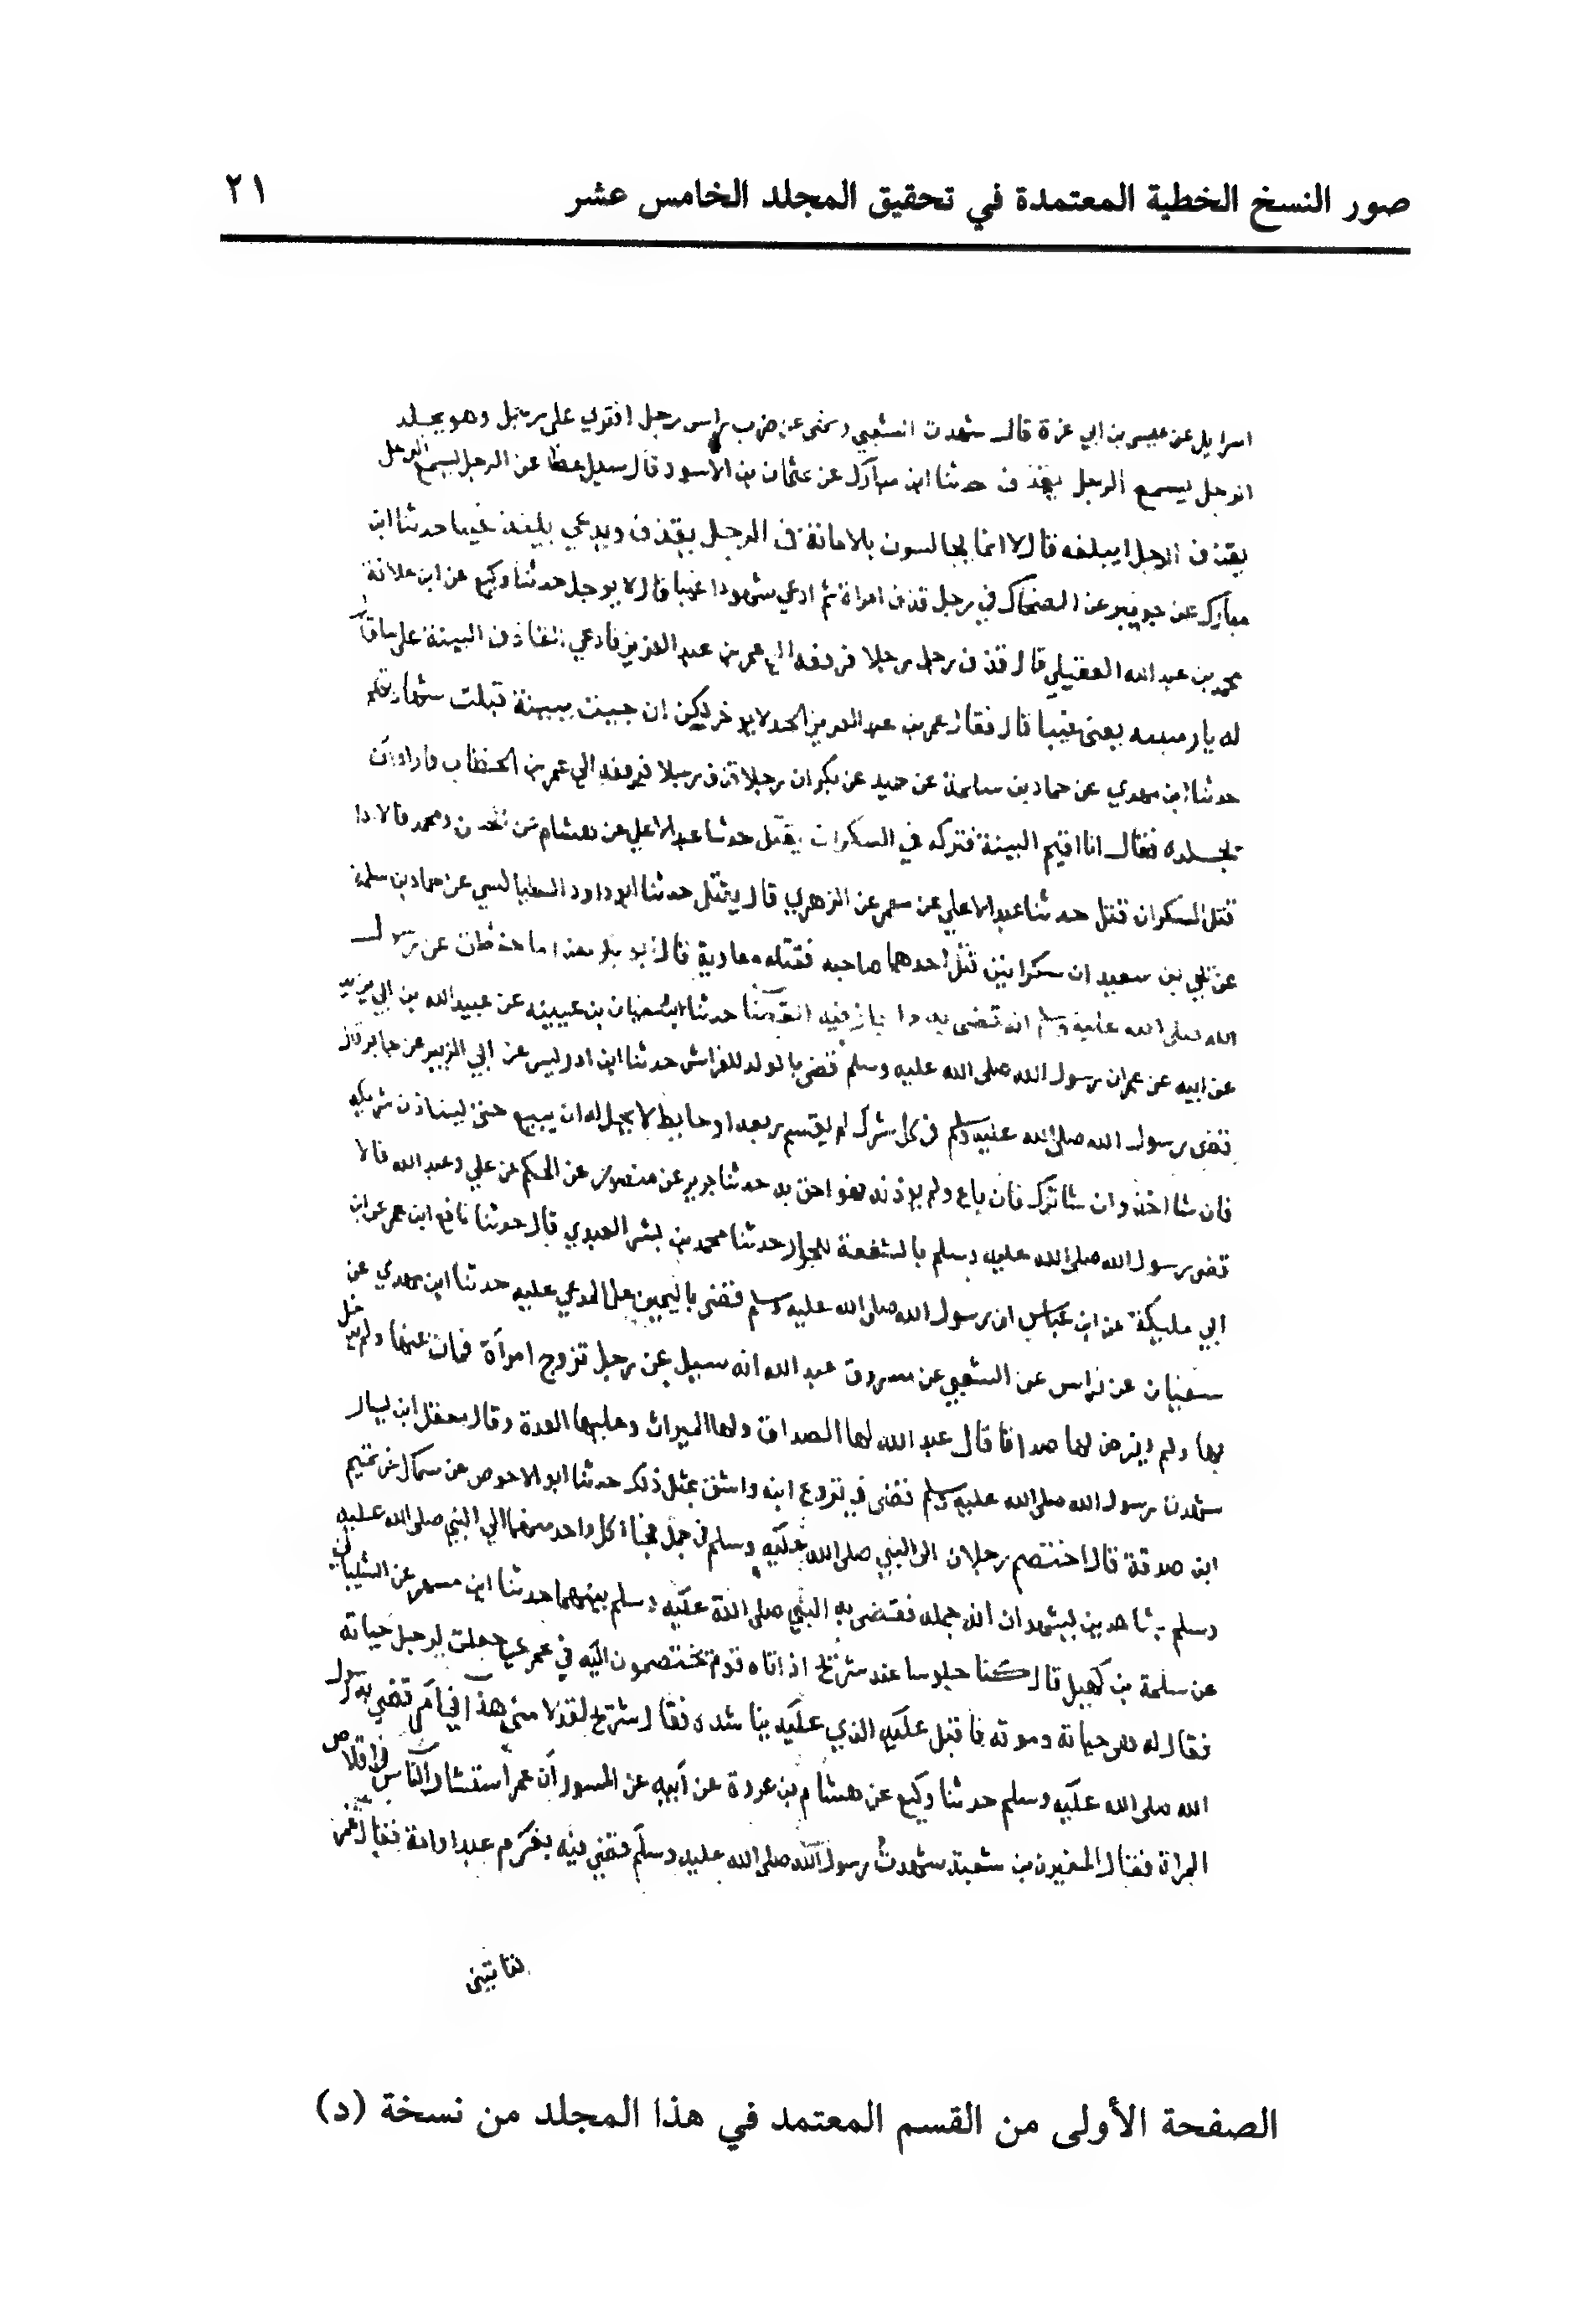 صور النسخ الخطية المعتمدة في تحقيق المجلد الخامس عشر ٢١
اسرايل عن عيسى بن ابي عزة قال شهدت الشعبي وسئل عن ضرب راس رجل افترى على رجل وهو يجلد
الرجل يسمع الرجل يقذف حدثنا ابن مبارك عن عثمان بن الاسود قال سيل عطا عن الرجل يسمع الرجل
يقذف الرجل ايبلغه قال لا انما يجالسون بالامانة في الرجل يقذف ويدعي بينة غيبا حدثنا ابن
مبارك عن جويبر عن الضحاك في رجل قذف امراة ثم ادعي شهودا غيبا قال لا يوجل حدثنا وكيع عن ابن علاثة
محمد بن عبد الله العقيلي قال قذف رجل رجلا فرفعه الي عمر بن عبد العزيز فادعي القاذف البينة على ما قال
له يعني غيبا قال فقال عمر بن عبد العزيز الحد لا يوخر لكن ان جيت ببينة قبلت شهادتهم
حدثنا ابن مهدي عن حماد بن سلمة عن حميد عن بكر ان رجلا قذف رجلا فرفعه الي عمر بن الخطاب فاراد ان
يجلده فقال انا اقيم البينة فتركه في السكران يقتل حدثنا عبد الاعلي عن هشام عن الحسن ومحمد قالا اذا
قتل السكران قتل حدثنا عبد الاعلي عن معمر عن الزهري قال يقتل حدثنا ابو داود الطيالسي عن حماد بن سلمة
عن يحيي بن سعيد ان سكرانين قتل احدهما صاحبه فقتله معاوية قال ابو بكر هذا ما حفظت عن رسول
الله صلى الله عليه وسلم انه قضى به حدثنا سفيان بن عيينه عن عبيد الله بن ابي يزيد
عن ابيه عن عمر ان رسول الله صلى الله عليه وسلم قضى بالولد للفراش حدثنا ابن ادريس عن ابي الزبير عن جابر قال
قضى رسول الله صلى الله عليه وسلم في كل شرك لم يقسم ربعة او حايط لا يحل له ان يبيع حتى يستاذن شريكه
فان شا اخذ وان شا ترك فان باع ولم يوذنه فهو احق به حدثنا جرير عن منصور عن الحكم عن علي وعبد الله قالا
قضى رسول الله صلى الله عليه وسلم بالشفعة للجوار حدثنا محمد بن بشر العبدي قال حدثنا نافع ابن عمر عن ابن
ابي مليكة عن ابن عباس ان رسول الله صلى الله عليه وسلم قضى باليمين على المدعي عليه حدثنا ابن مهدي عن
سفيان عن فراس عن الشعبي عن مسروق عبد الله انه سيل عن رجل تزوج امرأة فمات عنها ولم يدخل
بها ولم يفرض لها صداقا قال عبد الله لها الصداق ولها الميراث وعليها العدة وقال معقل ابن يسار
شهدت رسول الله صلى الله عليه وسلم قضى في تزوع ابنة واشق بمثل ذلك حدثنا ابو الاحوص عن سماك عن تميم
ابن صدقة قال اختصم رجلان الى النبي صلى الله عليه وسلم في جمل فجاء كل واحد منهما الي النبي صلى الله عليه
وسلم بشاهدين يشهدان انه جمله فقضى به النبي صلى الله عليه وسلم بينهما حدثنا ابن مسهر عن الشيباني
عن سلمة بن كهيل قال كنا جلوسا عند شريح اذ اتاه قوم يختصمون اليه في عمري جعلت لرجل حياته
فقال له هي حياته وموته فاقبل عليه الذي عليه يناشده فقال شريح لقد لامني هذا في امر قضي به رسول
الله صلى الله عليه وسلم حدثنا وكيع عن هشام بن عروة عن أبيه عن المسور أن عمر استشار الناس في املاص
المراة فقال المغيرة بن شعبة شهدت رسول الله صلى الله عليه وسلم قضى فيه بغرة عبد او امة فقال عمر
الصفحة الأولى من القسم المعتمد في هذا المجلد من نسخة (د)